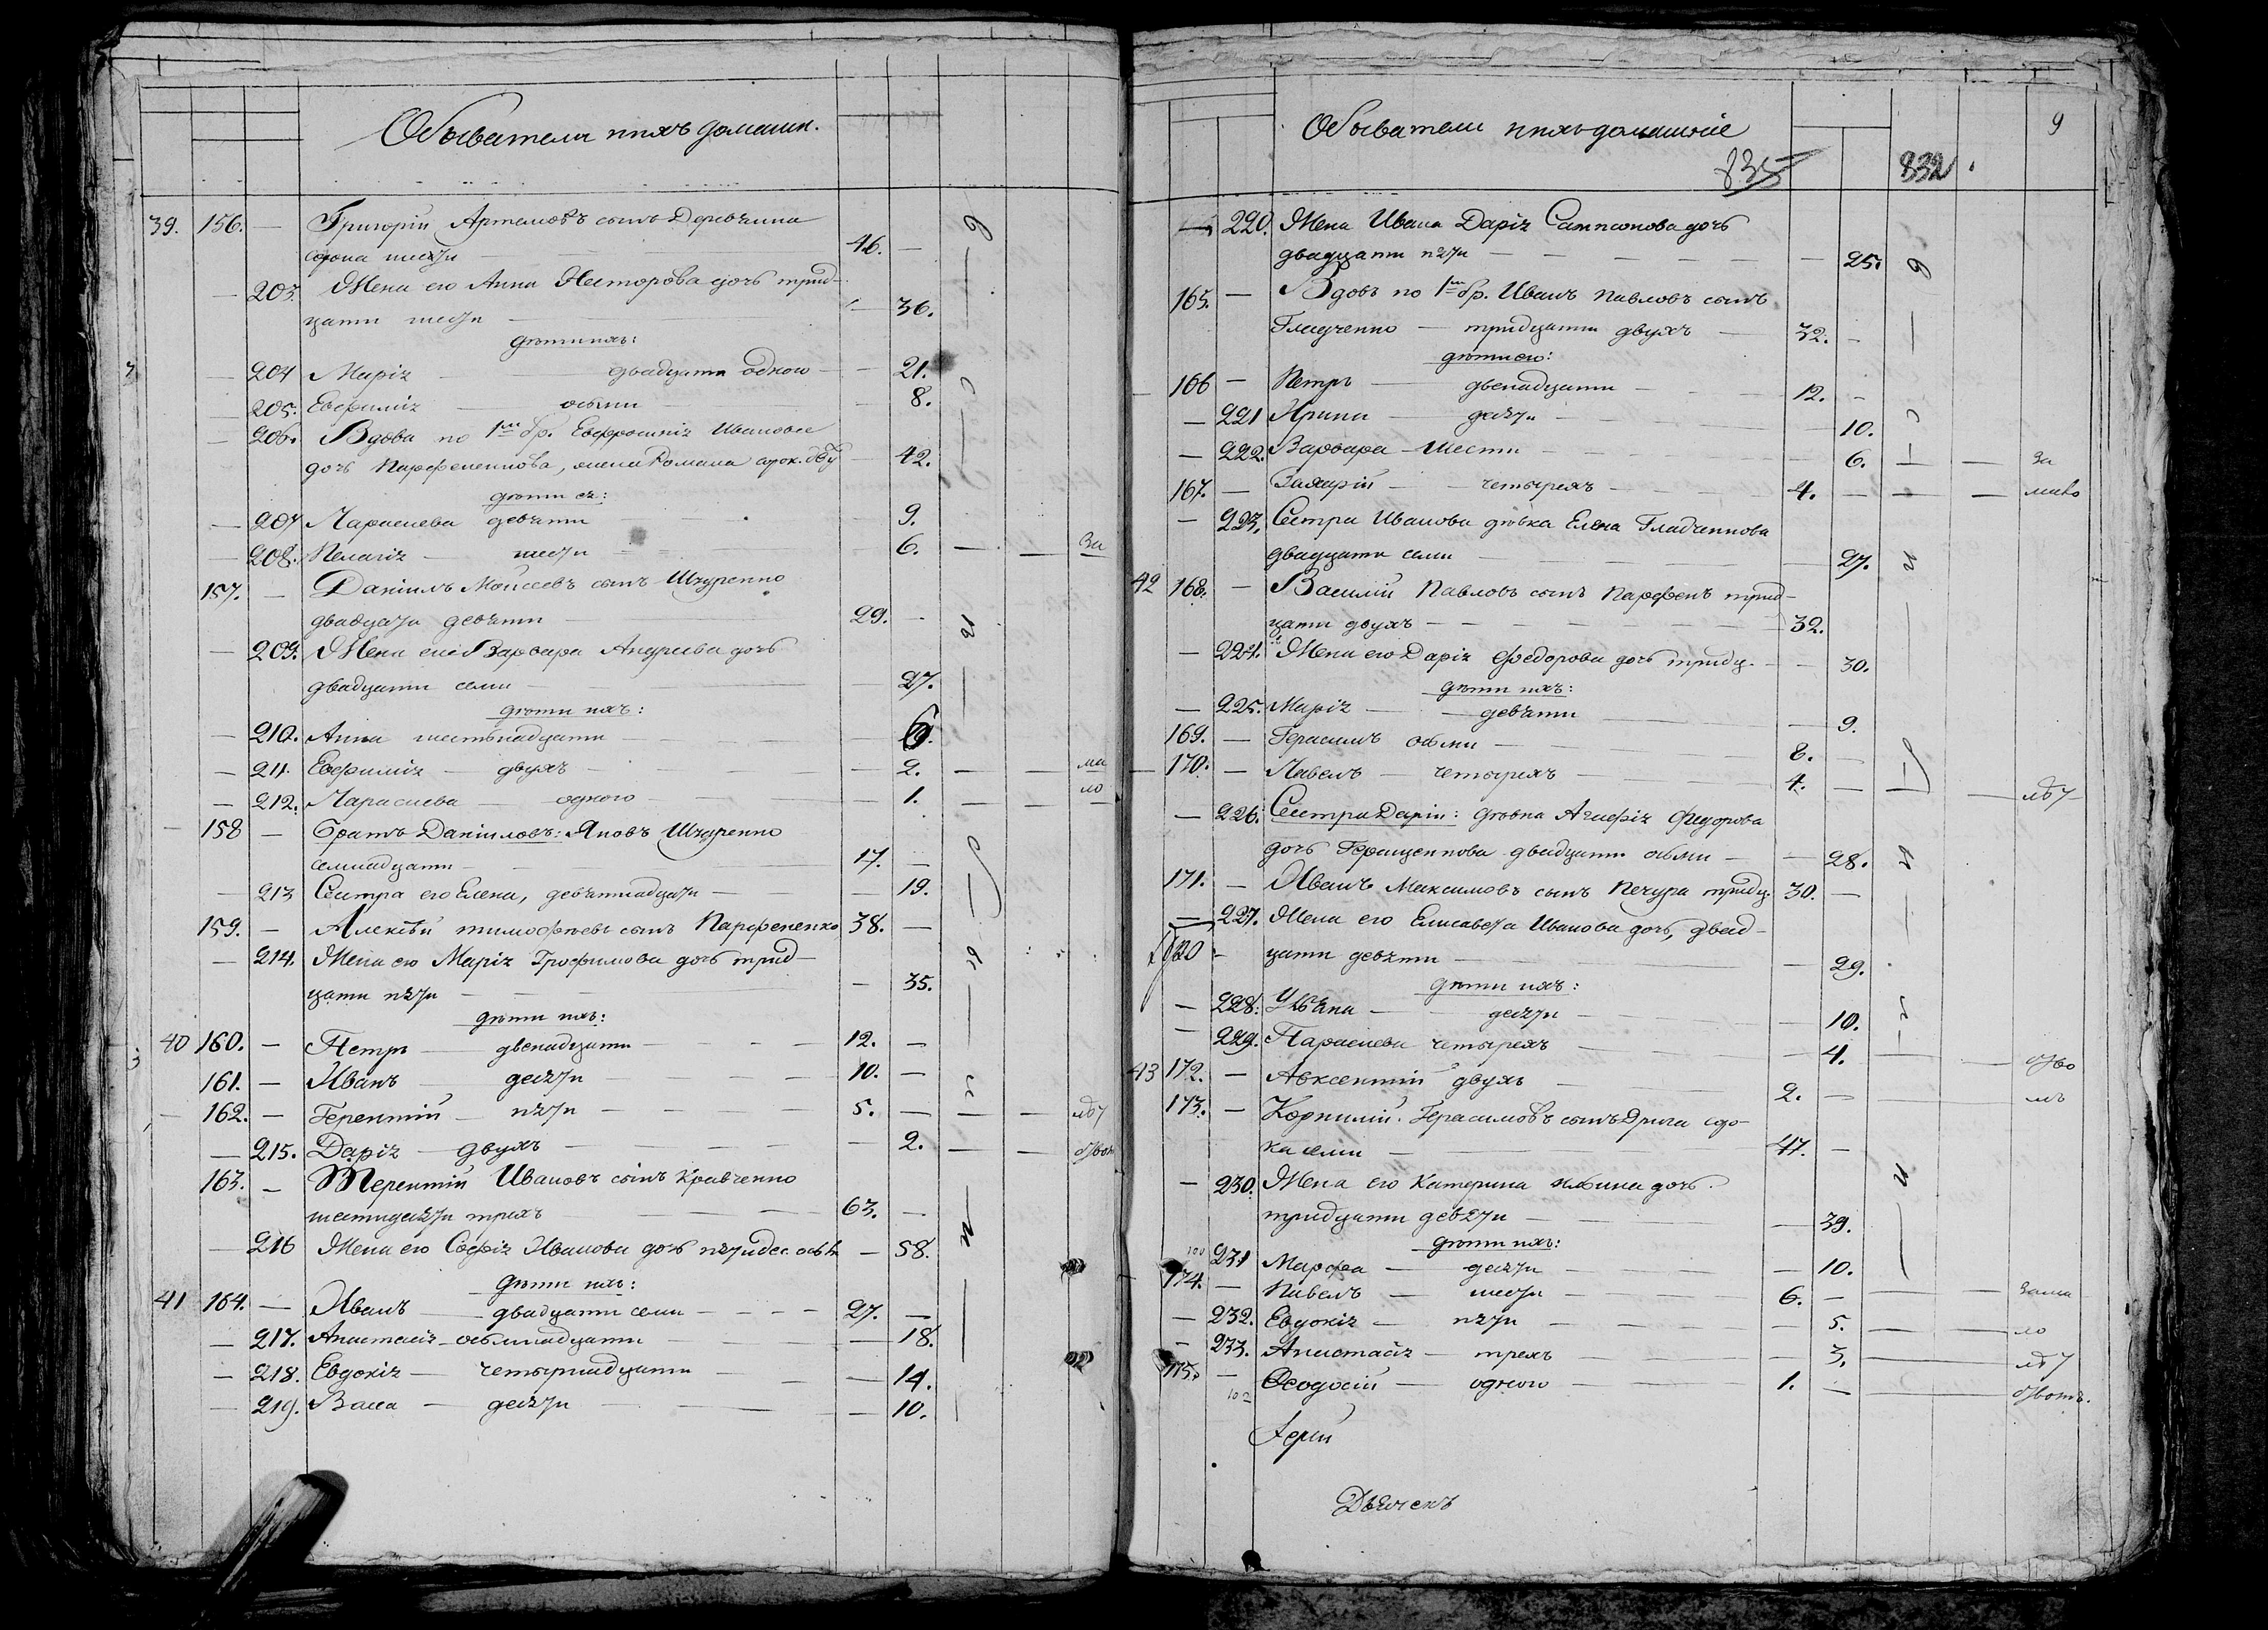 Обыватели и ихъ домашн.
39. 156. — Григорій Артемовъ сынъ Деревянка
сорока шести — 46. —
— 203. Жена его Анна Несторова дочь трид-
цати шести — 36.
дѣти ихъ:
— 204 Марія — двадцати одного — 21.
— 205. Евфимія — осьми — 8.
— 206. Вдова по 1мъ бр. Евфросинія Иванова
дочь Парфененкова, жена Романа сорок. дву — 42.
дѣти ея:
— 207 Параскева девяти — 9.
— 208. Пелагія — шести — 6. — — За
157. — Даніилъ Моисеевъ сынъ Шкуренко
двадцати девяти — 29. —
— 209. Жена его Варвара Андреева дочь
двадцати семи — 27.
дѣти ихъ:
— 210. Анна шестьнадцати — 6.
— 211. Евфимія — двухъ — 2. — — ма
— 212. Параскева — одного — 1. — — ло
— 158 — Братъ Даніиловъ: Яковъ Шкуренко
семнадцати — 17. —
— 213 Сестра его Елена, девятнадцати — 19.
159. — Алексѣй Тимофѣевъ сынъ Парфененко 38. —
— 214. Жена его Марія Трофимова дочь трид-
цати пяти — 35.
дѣти ихъ:
40 160. — Петръ — двенадцати — 12. —
161. — Иванъ — десяти — 10. —
— 162. — Терентій — пяти — 5. — — — лѣт
— 215. Дарія — двухъ — 2. — —
163. — Терентій Ивановъ сынъ Кравченко
шестидесяти трехъ — 63. —
— 216 Жена его Софія Иванова дочь пятидес. осьми — 58.
дѣти ихъ:
41 164. — Иванъ — двадцати семи — 27. —
— 217. Анастасія — осьмнадцати — 18.
— 218. Евдокія — четырнадцати — 14.
— 219. Васса — десяти — 10.
Обыватели и ихъ домашніе
9
835
832
— 220. Жена Ивана Дарія Сампсонова дочь
двадцати пяти — 25.
165. — Вдовъ по 1мъ бр. Иванъ Павловъ сынъ
Гладченко — тридцати двухъ — 32. —
дѣти его:
166 — Петръ — двенадцати — 12. —
— 221 Ирина — десяти — 10.
— 222. Варвара — шести — 6. — — За
167. — Захарій — четырехъ — 4. — — мало
— 223. Сестра Иванова дѣвка Елена Гладченкова
двадцати семи — 27.
42 168. — Василій Павловъ сынъ Парфенъ трид-
цати двухъ — 32.
— 224. Жена его Дарія Федорова дочь тридц. — 30.
дѣти ихъ:
— 225. Марія — девяти — 9.
169. — Герасимъ осьми — 8. —
170. — Павелъ — четырехъ — 4. — — лѣт
— 226. Сестра Даріи: дѣвка Агафія Федорова
дочь Геращенкова двадцати осьми — 28.
171. — Иванъ Максимовъ сынъ Печура тридц. 30. —
— 227. Жена его Елисавета Иванова дочь, двад-
цати девяти — 29.
дѣти ихъ:
— 228. Уліяна — десяти — 10.
— 229. Параскева четырехъ — 4.
43 172. — Авксентій двухъ — 2. —
173. — Корнилій Герасимовъ сынъ Дрига соро-
ка семи — 47. —
— 230. Жена его Катерина Ильина дочь
тридцати девяти — 39.
дѣти ихъ:
231 Марфа — десяти — 10.
174. — Павелъ — шести — 6. — — Зама
— 232. Евдокія — пяти — 5. — — ло
— 233. Анастасія — трехъ — 3. — — лѣт
175. — Феодосій — одного — 1. —
Іерей
Дьячекъ